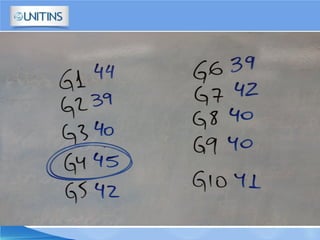 UNITINS
G1 44
G2 39
G3 40
G4 45
G5 42
G6 39
G7 42
G8 40
G9 40
G10 41